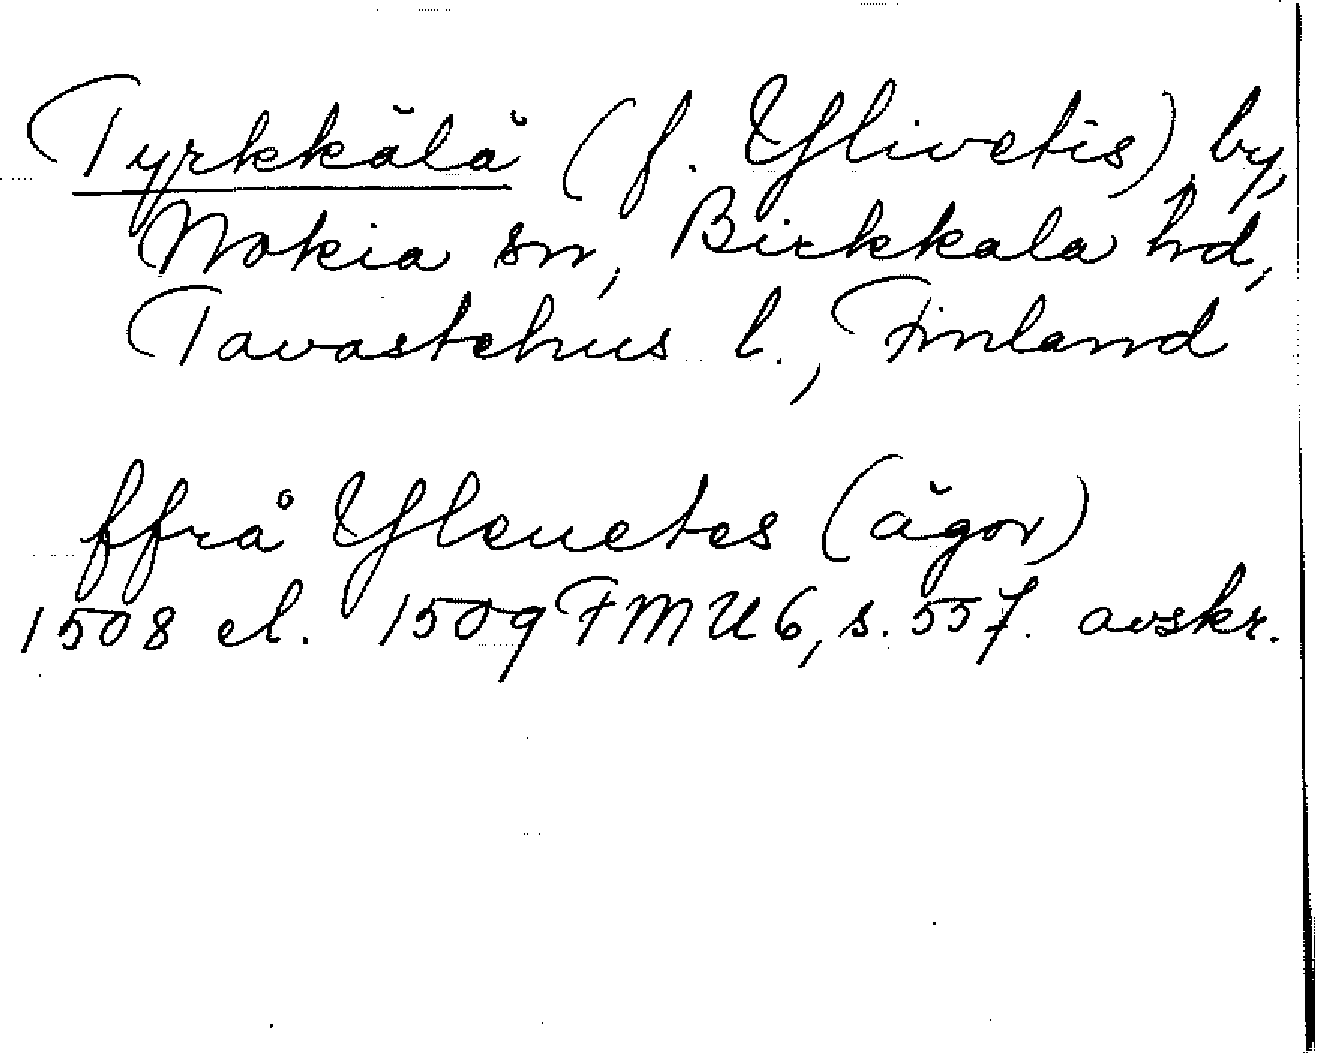 Tyrkkälä (f. Ylivetis) by,
Nokia sn, Birkkala hd,
Tavastehus l., Finland
ffrå Yleuetes (ägor)
1508 el. 1509 FMU 6, s. 557. avskr.